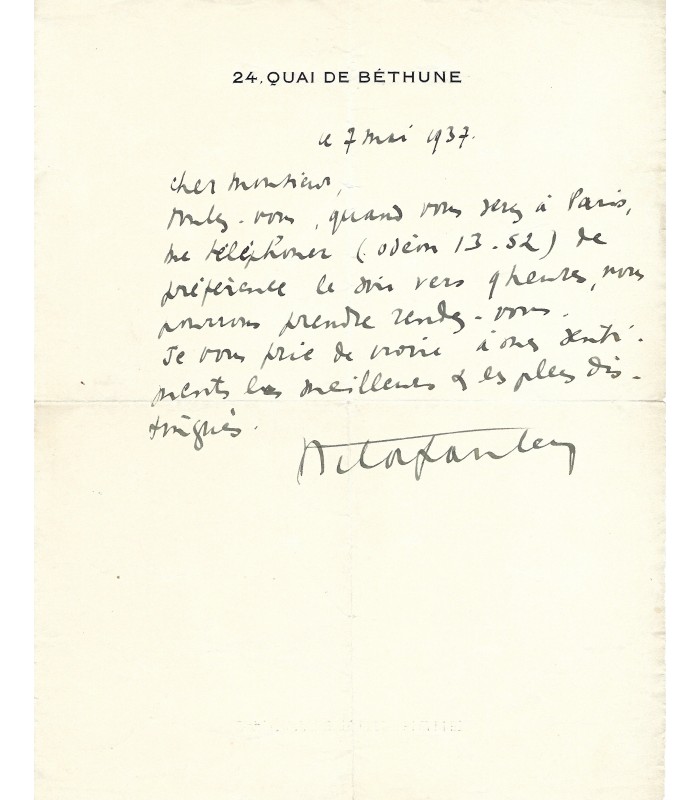 24, QUAI DE BÉTHUNE
le 7 mai 1937.
Cher Monsieur,
voulez-vous, quand vous serez à Paris,
me téléphoner (Odéon 13-52) de
préférence le soir vers 9 heures, nous
pourrons prendre rendez-vous.
Je vous prie de croire à mes senti-
ments les meilleurs & les plus dis-
tingués.